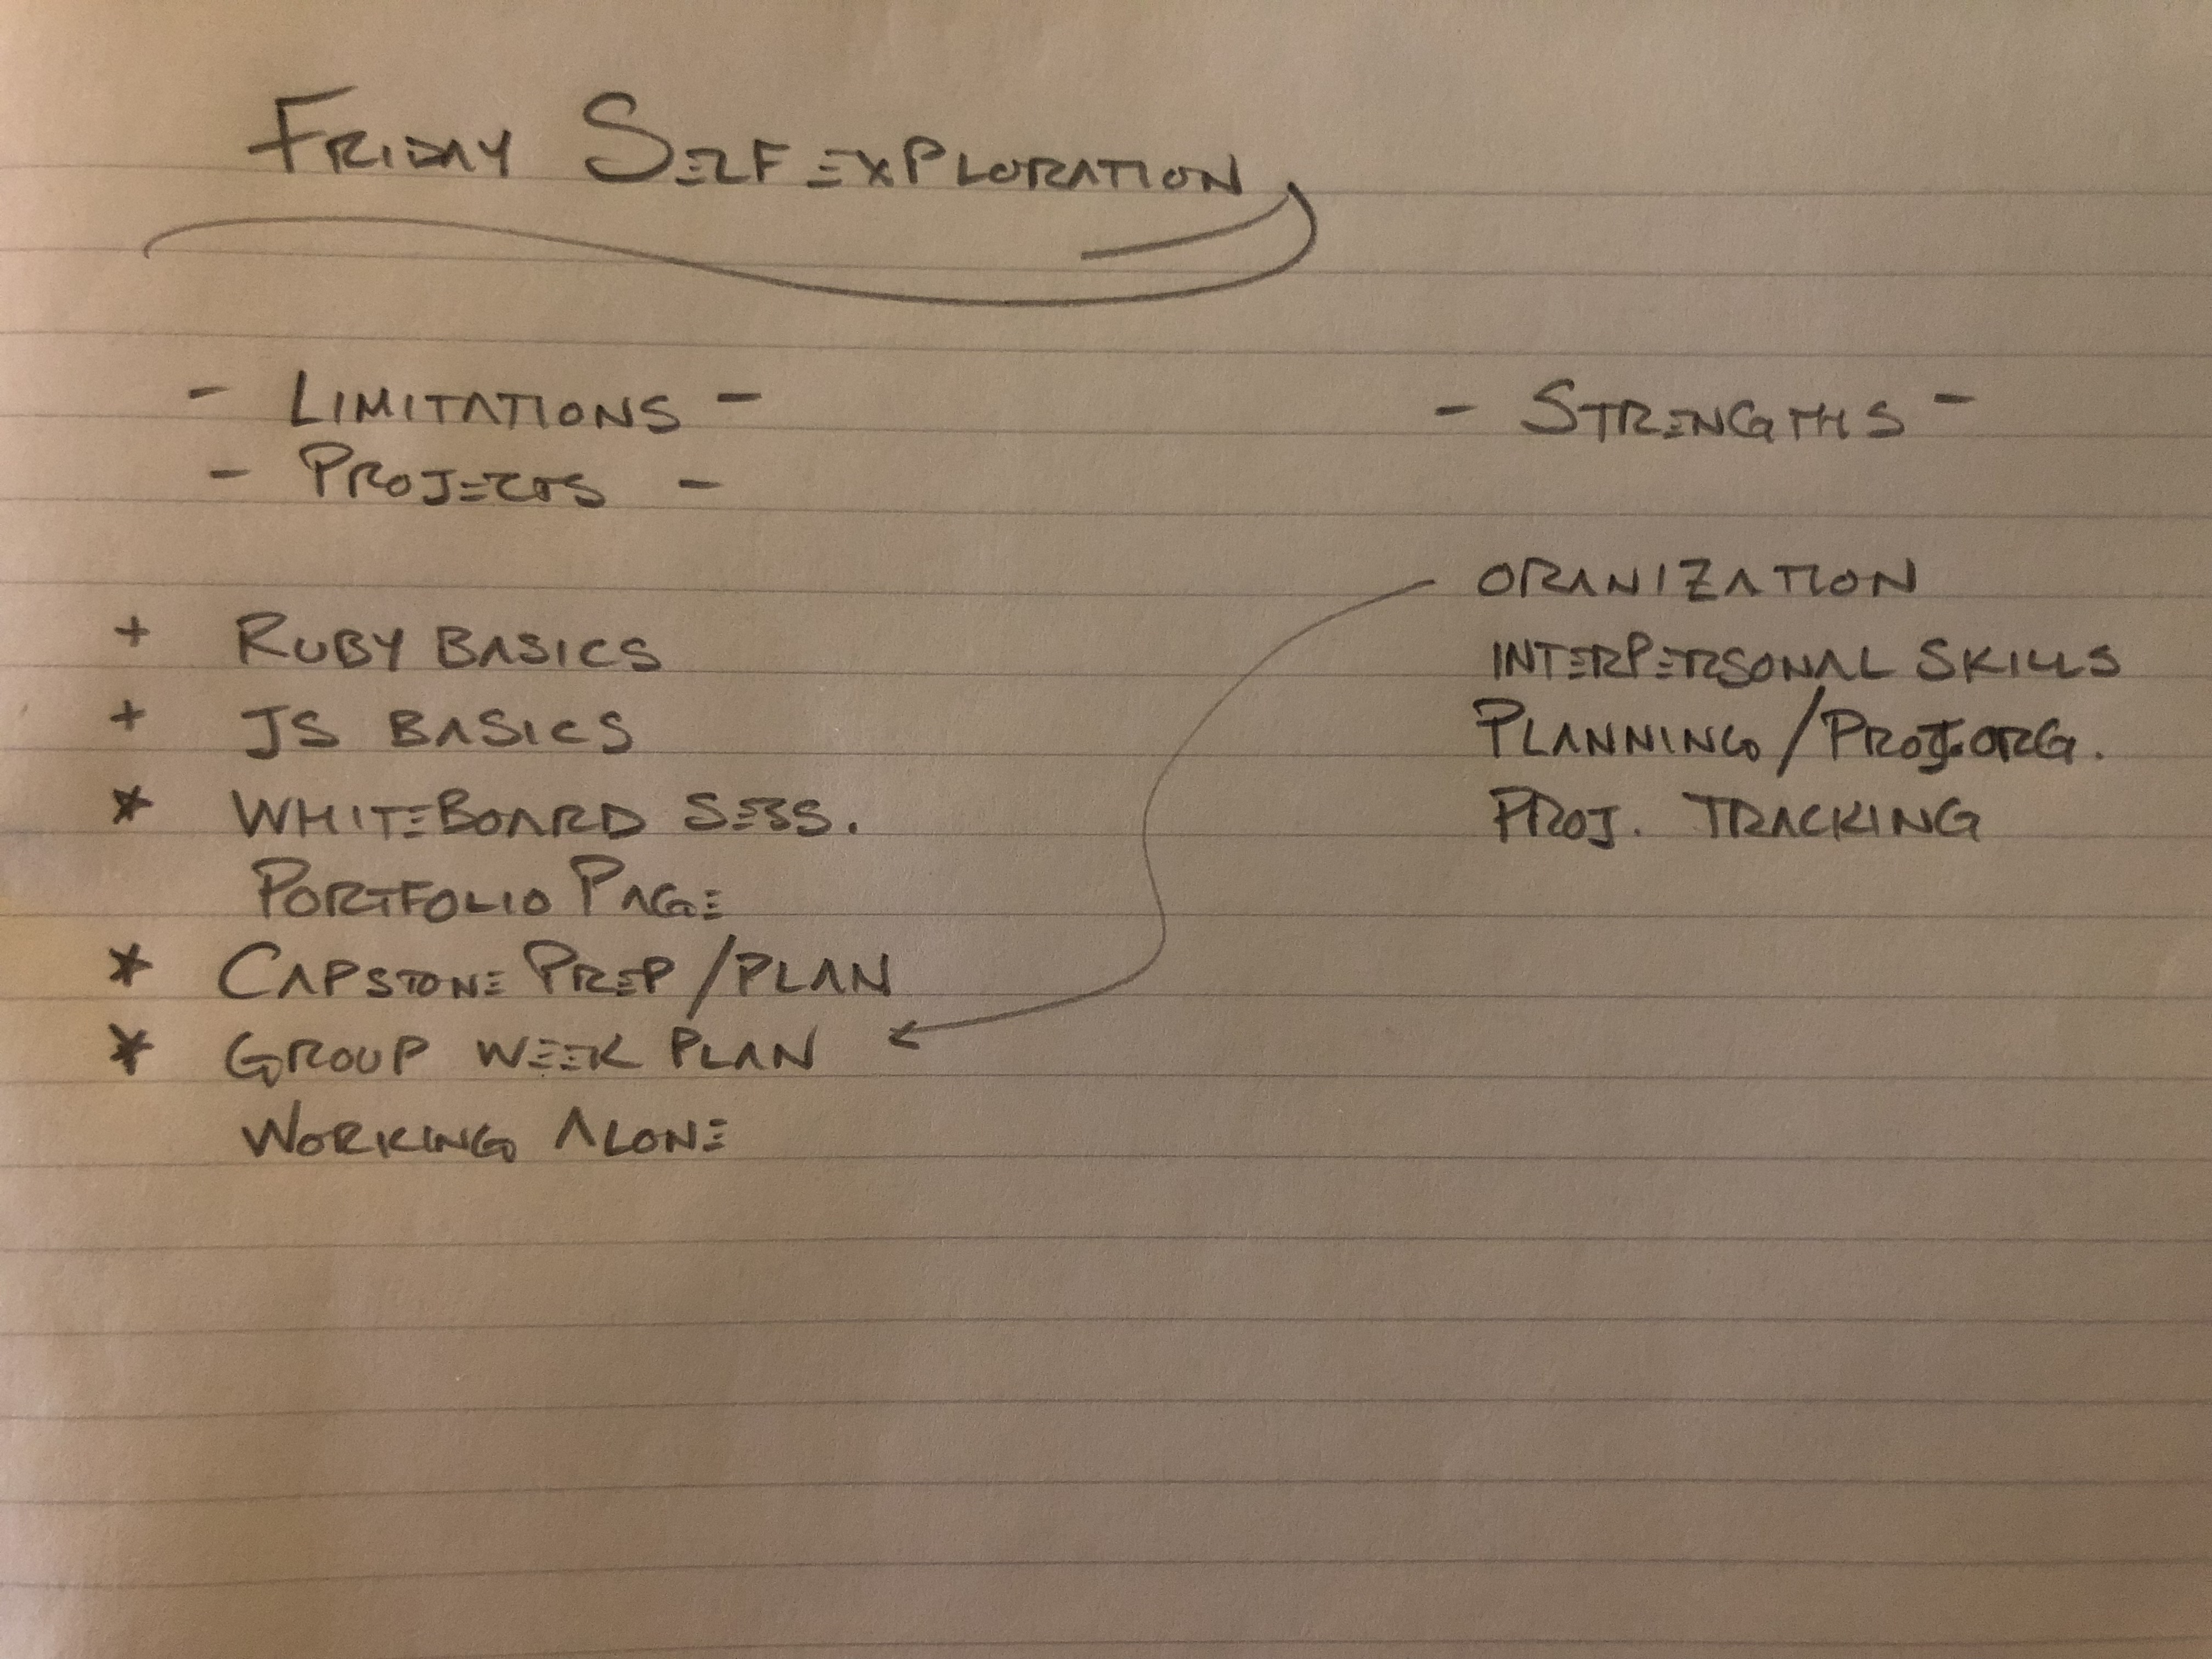 FRIDAY SELF EXPLORATION
- LIMITATIONS -
- PROJECTS -
+ RUBY BASICS
+ JS BASICS
* WHITEBOARD SESS.
PORTFOLIO PAGE
* CAPSTONE PREP / PLAN
* GROUP WEEK PLAN
WORKING ALONE
- STRENGTHS -
ORANIZATION
INTERPERSONAL SKILLS
PLANNING / PROJ. ORG.
PROJ. TRACKING